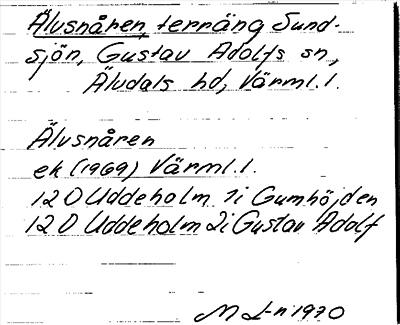 Älvsnåren, terräng Sund-
sjön, Gustav Adolfs sn,
Älvdals hd, Värml. l.
Älvsnåren
ek (1969) Värml. l.
12 D Uddeholm 1i Gumhöjden
12 D Uddeholm 2i Gustav Adolf
M L-n 1970